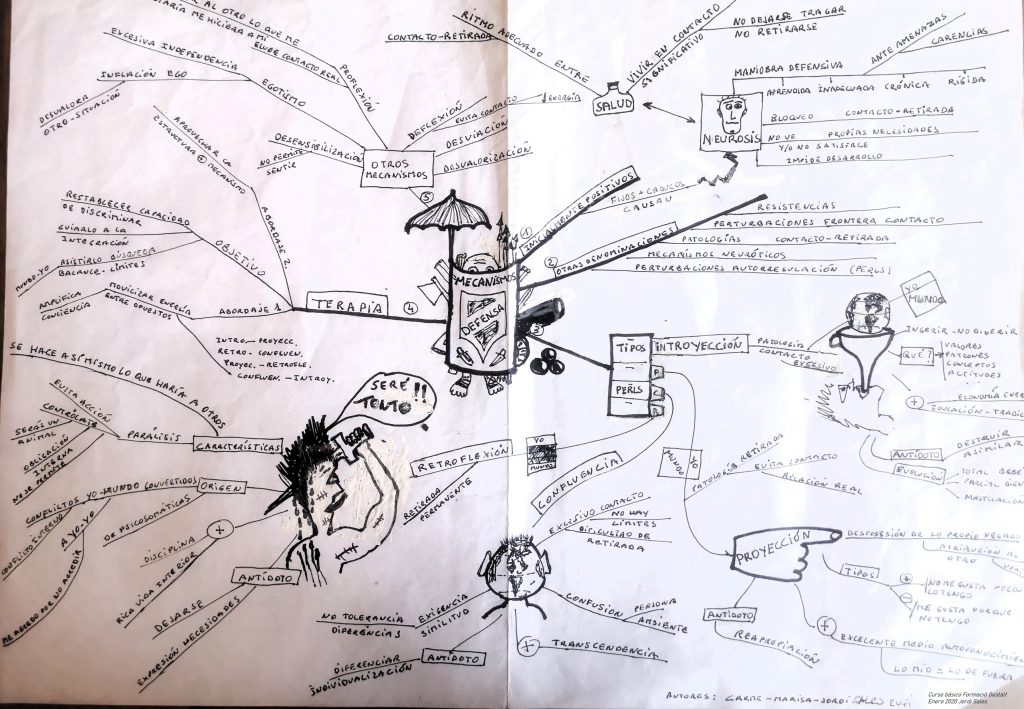 AL OTRO LO QUE ME
ME HICIERA A MI
ELUDE CONTACTO REAL
PROFLEXIÓN
EXCESIVA INDEPENDENCIA
INFLACIÓN EGO
EGOTISMO
DESVALORA
OTRO-SITUACIÓN
DESENSIBILIZACIÓN
NO PERMITE
SENTIR
OTROS
MECANISMOS
DEFLEXIÓN
EVITA CONTACTO
↓ENERGÍA
DESVIACIÓN
DESVALORIZACIÓN
5
RITMO ADECUADO ENTRE
CONTACTO-RETIRADA
VIVIR EN CONTACTO
SIGNIFICATIVO
NO DEJARSE TRAGAR
NO RETIRARSE
SALUD
NEUROSIS
MANIOBRA DEFENSIVA
ANTE AMENAZAS
CARENCIAS
APRENDIDA INADECUADA CRÓNICA RÍGIDA
BLOQUEO CONTACTO-RETIRADA
NO VE PROPIAS NECESIDADES
Y/O NO SATISFACE
IMPIDE DESARROLLO
MECANISMOS
DEFENSA
1
INICIALMENTE POSITIVOS
FIJOS + CADUCOS
CAUSAN
2
OTRAS DENOMINACIONES
RESISTENCIAS
PERTURBACIONES FRONTERA CONTACTO
PATOLOGÍAS CONTACTO-RETIRADA
MECANISMOS NEURÓTICOS
PERTURBACIONES AUTORREGULACIÓN (PERLS)
4
TERAPIA
ABORDAJE 2.
APROVECHAR LA
ESTRUCTURA + MECANISMO
OBJETIVO
RESTABLECER CAPACIDAD
DE DISCRIMINAR
GUIARLO A LA
INTEGRACIÓN
ASISTIRLO BÚSQUEDA
BALANCE-LÍMITES
MUNDO-YO
ABORDAJE 1
MOVILIZAR ENERGÍA
ENTRE OPUESTOS
AMPLIFICA
CONCIENCIA
INTRO.-PROYECC.
RETRO-CONFLUEN.
PROYEC.-RETROFLE.
CONFLUEN.-INTROY.
3
TIPOS
PERLS
P
C
R
INTROYECCIÓN
PATOLOGÍA
CONTACTO
EXCESIVO
YO
MUNDO
INGERIR-NO DIGERIR
QUÉ?
VALORES
PATRONES
CONCEPTOS
ACTITUDES
+
ECONOMÍA
EDUCACIÓN-
ANTÍDOTO
DESTRUIR
ASIMILAR
EVOLUCIÓN
TOTAL BEBÉ
PARCIAL
MASTICACIÓN
SERÉ
TONTO!!
RETROFLEXIÓN
YO
MUNDO
RETIRADA
PERMANENTE
SE HACE A SÍ MISMO LO QUE HARÍA A OTROS
CARACTERÍSTICAS
PARÁLISIS
EVITA ACCIÓN
CONTRÓLATE
SERÁS UN
ANIMAL
OBLIGACIÓN
INTERNA
NO SE PERMITE
ORIGEN
CONFLICTOS YO-MUNDO (CONVERTIDOS)
A YO-YO
CONFLICTO INTERNO
ME AGREDO POR NO AGREDIR
OR PSICOSOMÁTICAS
+
DISCIPLINA
RICA VIDA INTERIOR
ANTÍDOTO
DEJARSE
EXPRESIÓN NECESIDADES
CONFLUENCIA
EXCESIVO CONTACTO
NO HAY
LÍMITES
DIFICULTAD DE
RETIRADA
CONFUSIÓN PERSONA
AMBIENTE
EXIGENCIA
SIMILITUD
NO TOLERANCIA
DIFERENCIAS
ANTÍDOTO
DIFERENCIAR
INDIVIDUALIZACIÓN
+
TRANSCENDENCIA
MUNDO
YO
PATOLOGÍA RETIRADA
EVITA CONTACTO
RELACIÓN REAL
PROYECCIÓN
DESPOSESIÓN DE LO PROPIO NEGADO
ATRIBUCIÓN AL
OTRO
TIPOS
+
NO ME GUSTA PORQUE
LO TENGO
-
ME GUSTA PORQUE
NO TENGO
ANTÍDOTO
REAPROPIACIÓN
+
EXCELENTE MEDIO AUTOCONOCIMIENTO
LO MIO = LO DE FUERA
AUTORES: CARME-MARISA-JORDI SALES RUFÍ
Curso básico Formació Gestalt
Enero 2020 Jordi Sales